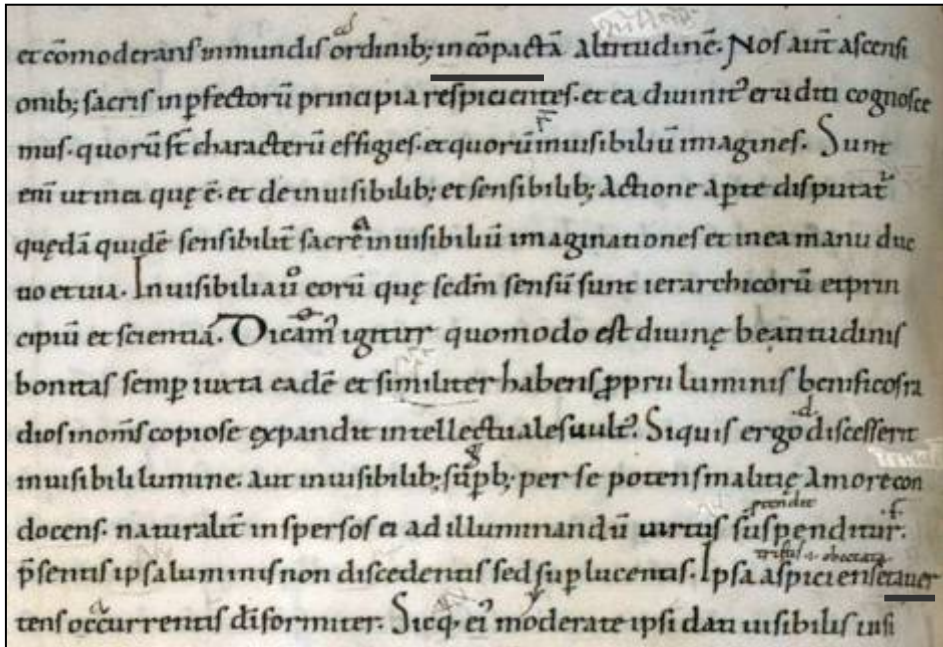 et cōmoderans inmundis ordinib; incōpactā altitudinē. Nos aut̄ ascensi
onib; sacris inp̱fectorū principia respicientes. et ea diuinitꝰ eruditi cognosce
mus. quorū st̄ characterū effigies. et quorū inuisibiliū imagines. Sunt
eni ut in ea quę ē. et de inuisibilib; et sensibilib; Actione ap̱te disputat᷑
quędā quidē sensibilit̄ sacre inuisibiliū imaginationes et in ea manu duc
tio et uia. Inuisibilia u̅ eorū quę scdm̄ sensū sunt ierarchicorū et prin
cipiū et scientiā. Dicamꝰ igitur quomodo est diuinę beatitudinis
bonitas semp̱ iuxta eadē et similiter habens ꝓprii luminis benificos ra
dios in om̄s copiose expandit intellectuales uultꝰ. Siquis ergo discesserit
inuisibili lumine. aut inuisibilib; sup̱b; per se potens malitię Amore con
docens. naturalit̄ inspersos ei ad illuminandū uirtus suspenditur.
p̄sentis ipsa luminis non discedentis sed sup̱ lucentis. Ipsa aspiciens et auer
tens occurrentis dīformiter. Sicq. ei moderate ipsi dati uisibilis uisi